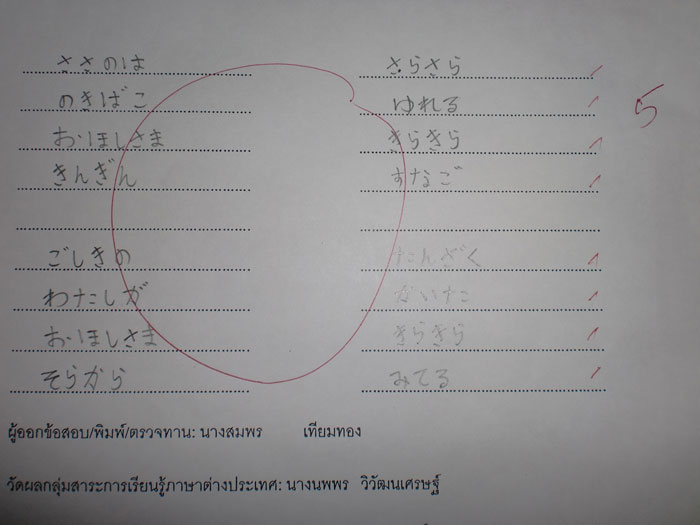 ささのは さらさら
のきばこ ゆれる
おほしさま きらきら
きんぎん すなご
5
ごしきの たんざく
わたしが かいた
おほしさま きらきら
そらから みてる
ผู้ออกข้อสอบ/พิมพ์/ตรวจทาน: นางสมพร เทียมทอง
วัดผลกลุ่มสาระการเรียนรู้ภาษาต่างประเทศ: นางนพพร วิวัฒนเศรษฐ์